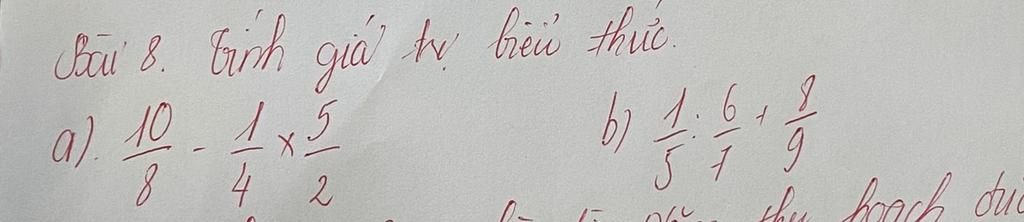 Bài 8. Tính giá trị biểu thức.
a). 10/8 - 1/4 x 5/2 b) 1/5 : 6/7 + 8/9
thu hoạch